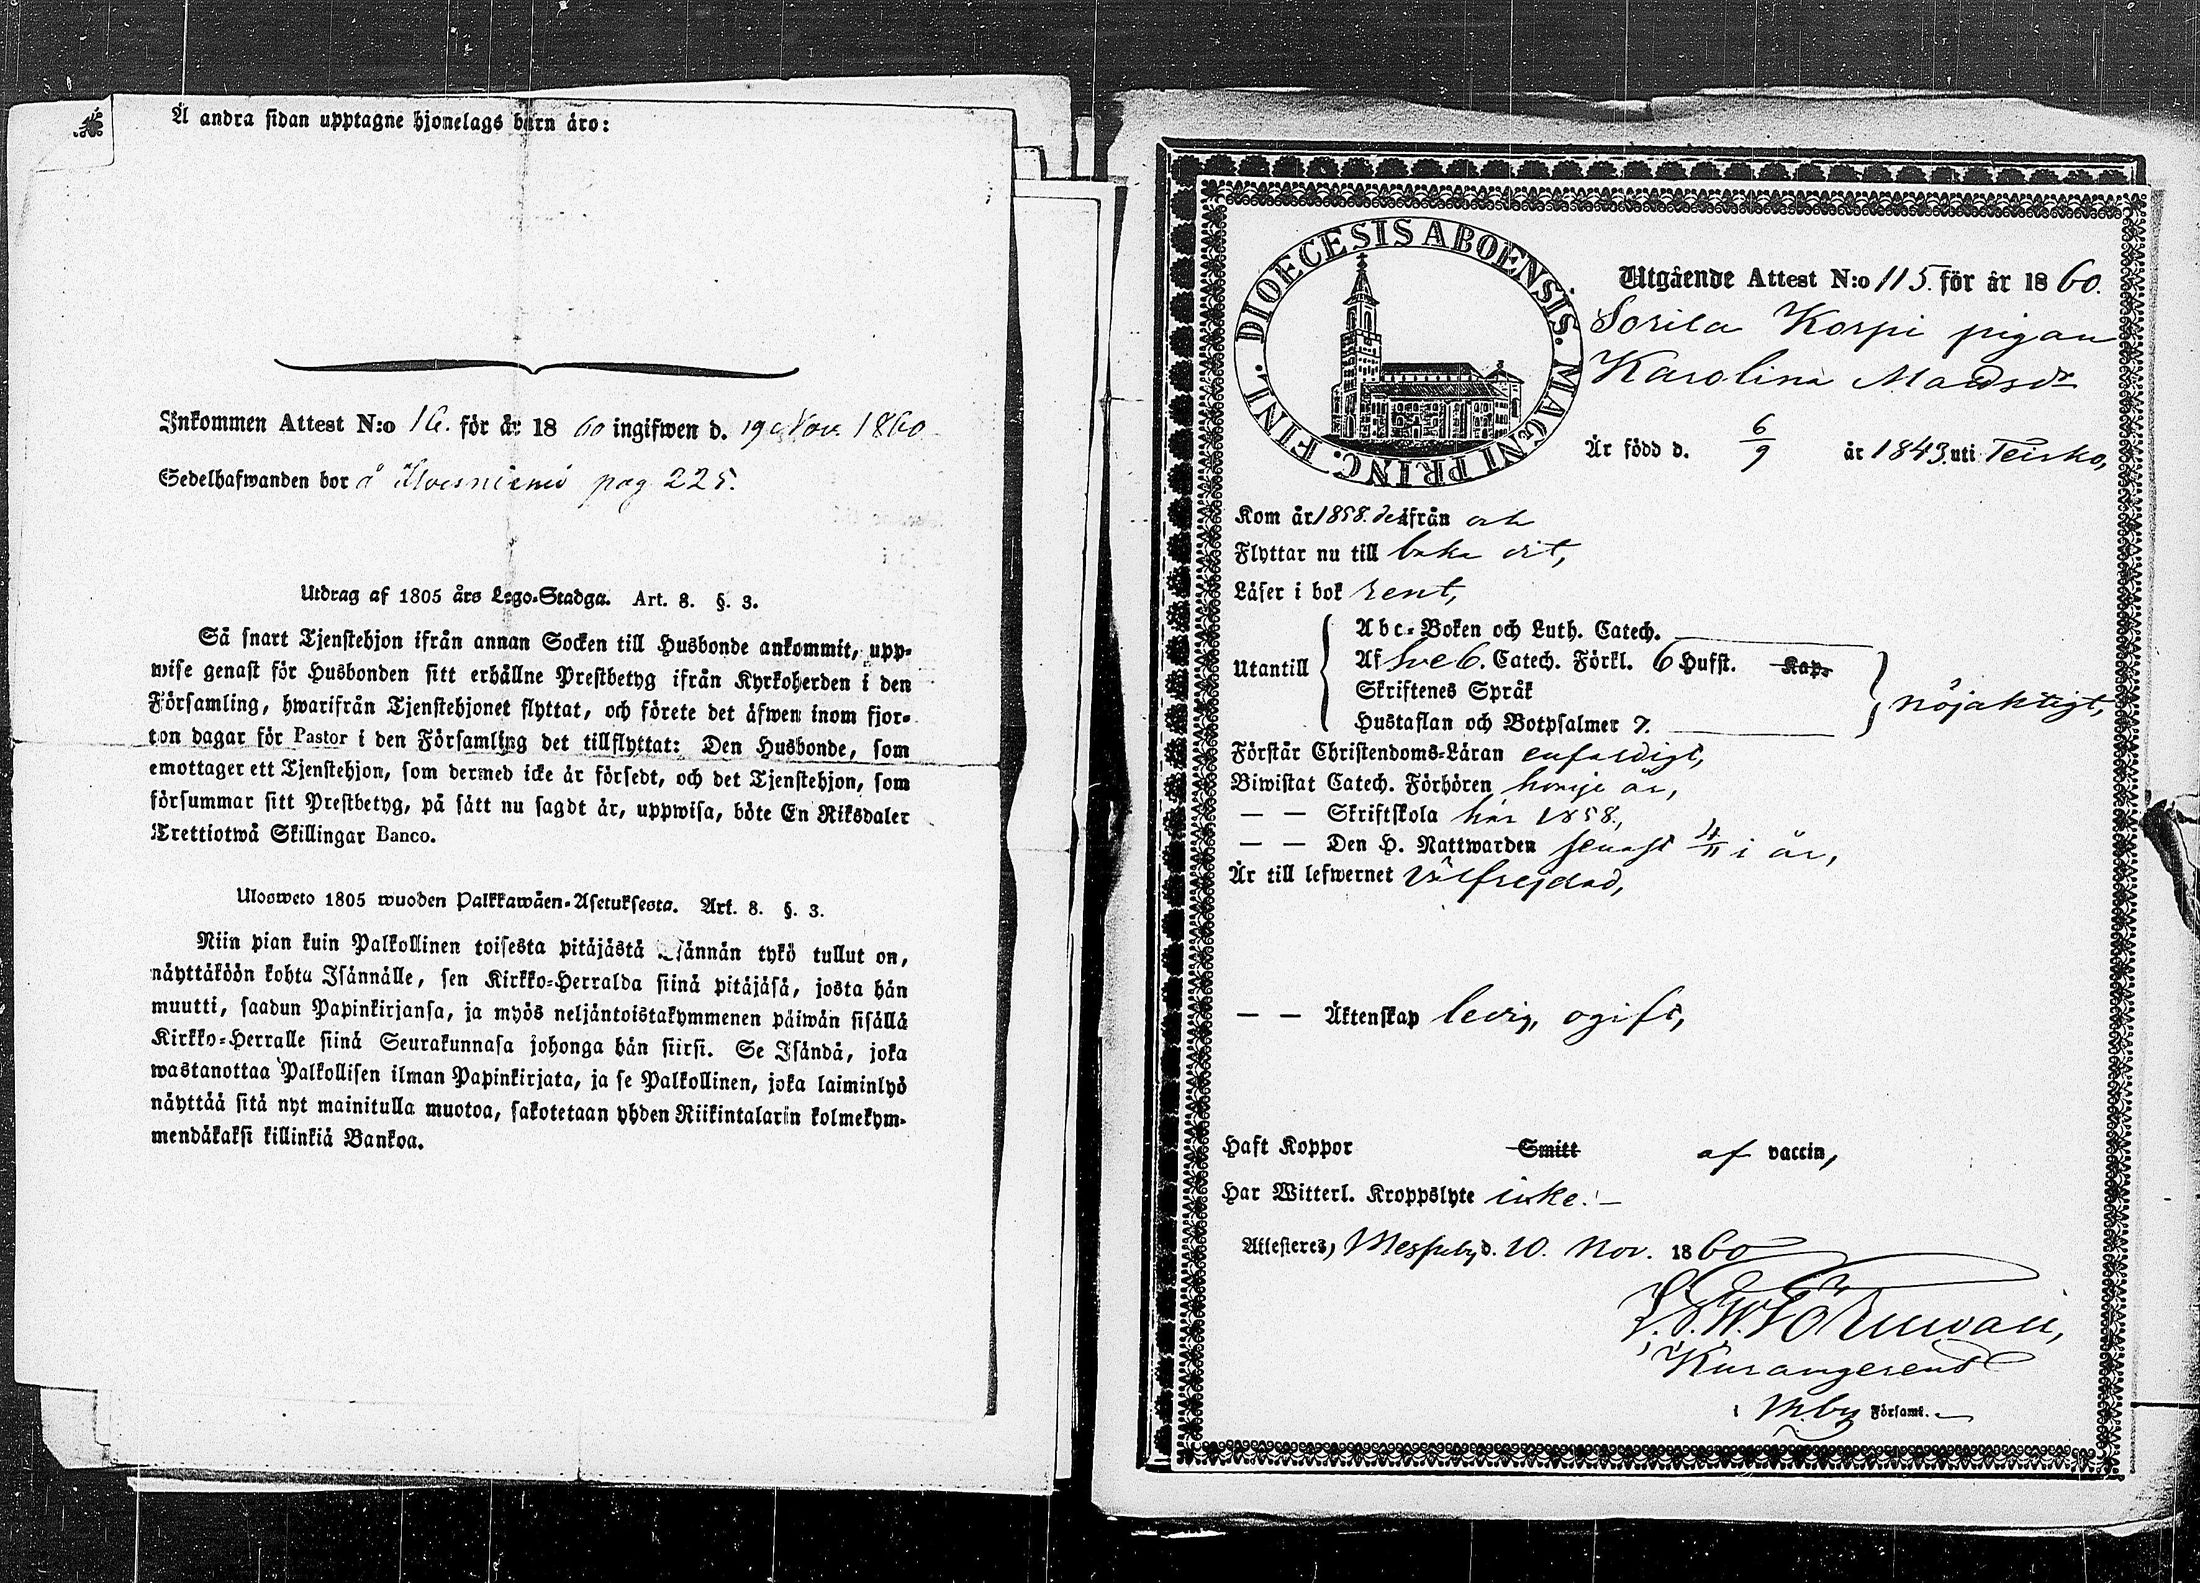 Å andra sidan upptagne hjonelags barn äro:
Inkommen Attest N:o 16. för år 1860 ingifwen d. 19 Nov. 1860
Sedelhafwanden bor å pag 225.
Utdrag af 1805 års Lego-Stadga. Art. 8. §. 3.
Så snart Tjenstehjon ifrån annan Socken till Husbonde ankommit, upp-
wise genast för Husbonden sitt erhållne Prestbetyg ifrån Kyrkoherden i den
Församling, hwarifrån Tjenstehjonet flyttat, och förete det äfwen inom fjor-
ton dagar för Pastor i den Församling det tillflyttat: Den Husbonde, som
emottager ett Tjenstehjon, som dermed icke är försedt, och det Tjenstehjon, som
försummar sitt Prestbetyg, på sätt nu sagdt är, uppwisa, böte En Riksdaler
Trettiotwå Skillingar Banco.
Ulosweto 1805 wuoden Palkkawäen-Asetuksesta. Art. 8. §. 3.
Niin pian kuin Palkollinen toisesta pitäjästä Isännän tykö tullut on,
näyttäköön kohta Isännälle, sen Kirkko-Herralda siinä pitäjäsä, josta hän
muutti, saadun Papinkirjansa, ja myös neljäntoistakymmenen päiwän sisällä
Kirkko-Herralle siinä Seurakunnasa johonga hän siirsi. Se Isändä, joka
wastanottaa Palkollisen ilman Papinkirjata, ja se Palkollinen, joka laiminlyö
näyttää sitä nyt mainitulla muotoa, sakotetaan yhden Riikintalarin kolmekym-
mendäkaksi killinkiä Bankoa.
DIOECESIS ABOENSIS. MAGNI PRINC. FINL.
Utgående Attest N:o 115. för år 1860.
Sorila Korpi pigan
Karolina Madsdr
Är född d. 6/9 år 1843. uti Teisko,
Kom år 1858. derifrån och
Flyttar nu till baka dit,
Läser i bok rent,
Utantill
Abc-Boken och Luth. Catech.
Af Sveb. Catech. Förkl. 6 Hufst. Kap.
Skriftenes Språk
Hustaflan och Botpsalmer 7.
nöjaktigt,
Förstår Christendoms-Läran enfaldigt,
Biwistat Catech. Förhören hvarje år,
— — Skriftskola här 1858.,
— — Den H. Nattwarden senast 4/11 i år,
Är till lefwernet välfrejdad,
— — Äktenskap ledig, ogift,
Haft Koppor Smitt af vaccin,
Har Witterl. Kroppslyte icke.
Attesteres, Messuby d. 10. Nov. 1860
i M.by Församl.